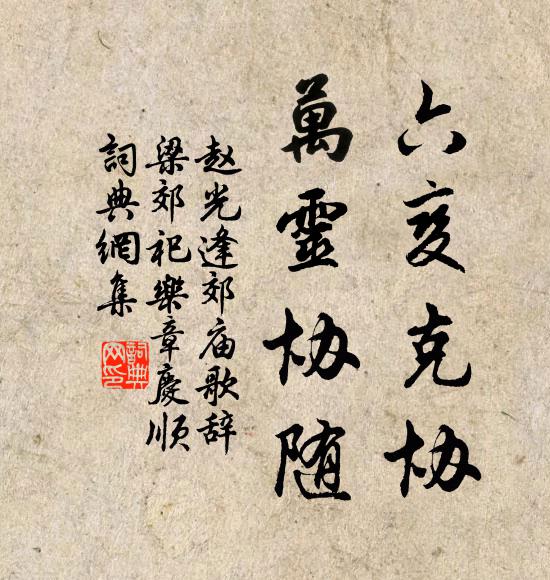 六变克协
萬靈协随
赵光逢郊庙歌辞
梁郊祀樂章慶順
詞典網集
詞典
网印